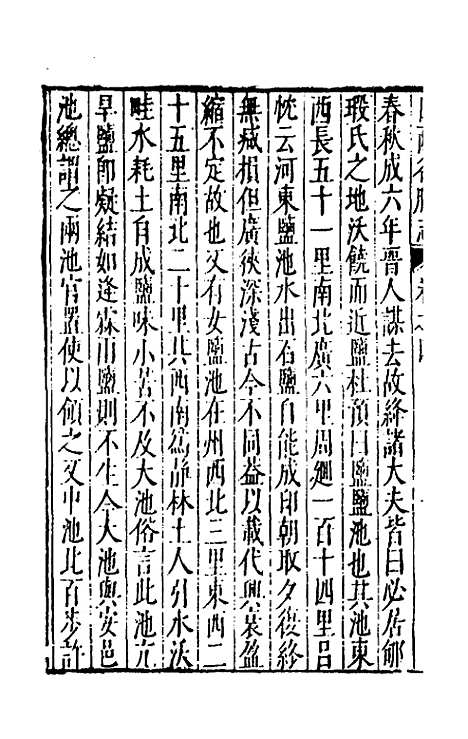 春秋成六年晉人謀去故絳諸大夫皆曰必居郇
瑕氏之地沃饒而近鹽杜預曰鹽鹽池也其池東
西長五十一里南北廣六里周廻一百十四里呂
忱云河東鹽池水出石鹽自能成印朝取夕復終
無減損但廣狹深淺古今不同葢以載代興衰盈
縮不定故也又有女鹽池在州西北三里東西二
十五里南北二十里其西南爲靜林土人引水沃
畦水耗土自成鹽味小苦不及大池俗言此池亢
旱鹽卽凝結如逢霖雨鹽則不生今大池與安邑
池總謂之兩池官置使以領之又中池北百步許